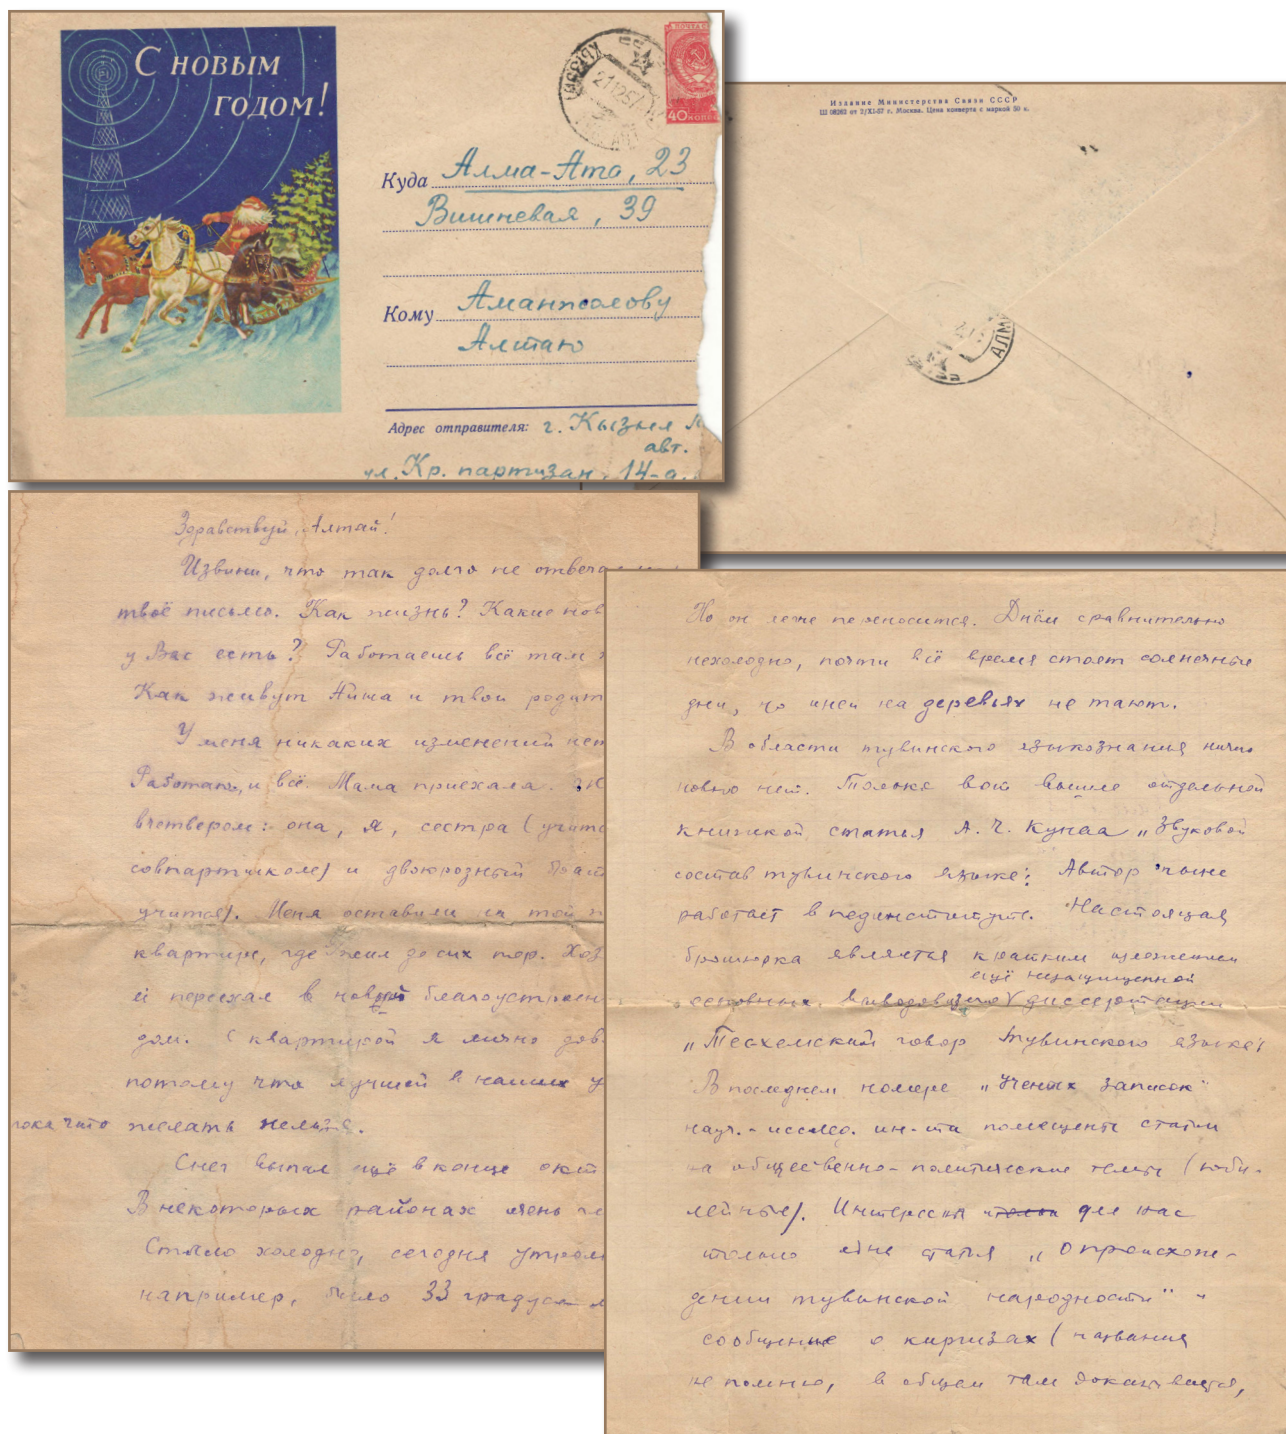 С НОВЫМ
ГОДОМ!
ПОЧТА
40 КОПЕЕК
КЫЗЫЛ
211257
Куда Алма-Ата, 23
Вишневая, 39
Кому Аманжолову
Алтаю
Адрес отправителя: г. Кызыл
авт.
ул. Кр. партизан, 14-а.
Издание Министерства Связи СССР
Ш 08263 от 2/XI-57 г. Москва. Цена конверта с маркой 50 к.
АЛМ
Здравствуй, Алтай!
Извини, что так долго не отвечал
твоё письмо. Как жизнь? Какие нов
у Вас есть? Работаешь всё там
Как живут Айша и твои родит
У меня никаких изменений нет
Работаю, и всё. Мама приехала.
вчетвером: она, я, сестра (учит
совпартшколе) и двоюрозный брат
учится). Меня оставили на той
квартире, где жил до сих пор. Хоз
ей переехал в новый благоустроен
дом. С квартирой я лично дов
потому что лучшей в наших у
пока что желать нельзя.
Снег выпал ещё в конце окт
В некоторых районах очень
Стало холодно, сегодня утром
например, было 33 градуса
Но он легче переносится. Днём сравнительно
нехолодно, почти всё время стоят солнечные
дни, но иней на деревьях не тают.
В области тувинского языкознания ничего
нового нет. Только вот вышла отдельной
книжкой статья А. Ч. Кунаа „Звуковой
состав тувинского языка". Автор ныне
работает в пединституте. Настоящая
брошюрка является кратким изложением
ещё незащищенной
основных выводов диссертации
„Тесхемский говор тувинского языка".
В последнем номере „Ученых записок"
науч.-исслед. ин-та помещены статьи
на общественно-политические темы (юби-
лейные). Интересна для нас
только одна статья „О происхож-
дении тувинской народности" и
сообщение о киргизах (названия
не помню, в общем там доказывается,